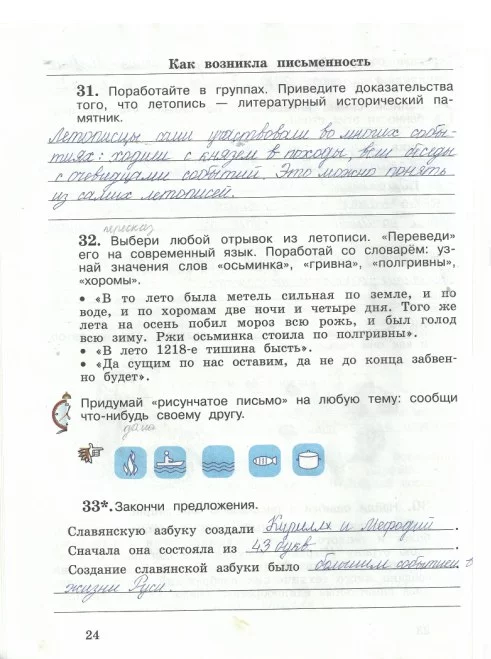 Как возникла письменность
31. Поработайте в группах. Приведите доказательства
того, что летопись — литературный исторический па-
мятник.
Летописцы сами участвовали во многих собы-
тиях: ходили с князем в походы, вели беседы
с очевидцами событий. Это можно понять
из самих летописей.
пересказ
32. Выбери любой отрывок из летописи. «Переведи»
его на современный язык. Поработай со словарём: уз-
най значения слов «осьминка», «гривна», «полгривны»,
«хоромы».
• «В то лето была метель сильная по земле, и по
воде, и по хоромам две ночи и четыре дня. Того же
лета на осень побил мороз всю рожь, и был голод
всю зиму. Ржи осьминка стоила по полгривны».
• «В лето 1218-е тишина бысть».
• «Да сущим по нас оставим, да не до конца забвен-
но будет».
Придумай «рисунчатое письмо» на любую тему: сообщи
что-нибудь своему другу.
дано
33*. Закончи предложения.
Славянскую азбуку создали Кирилл и Мефодий.
Сначала она состояла из 43 букв.
Создание славянской азбуки было большим событием в
жизни Руси.
24